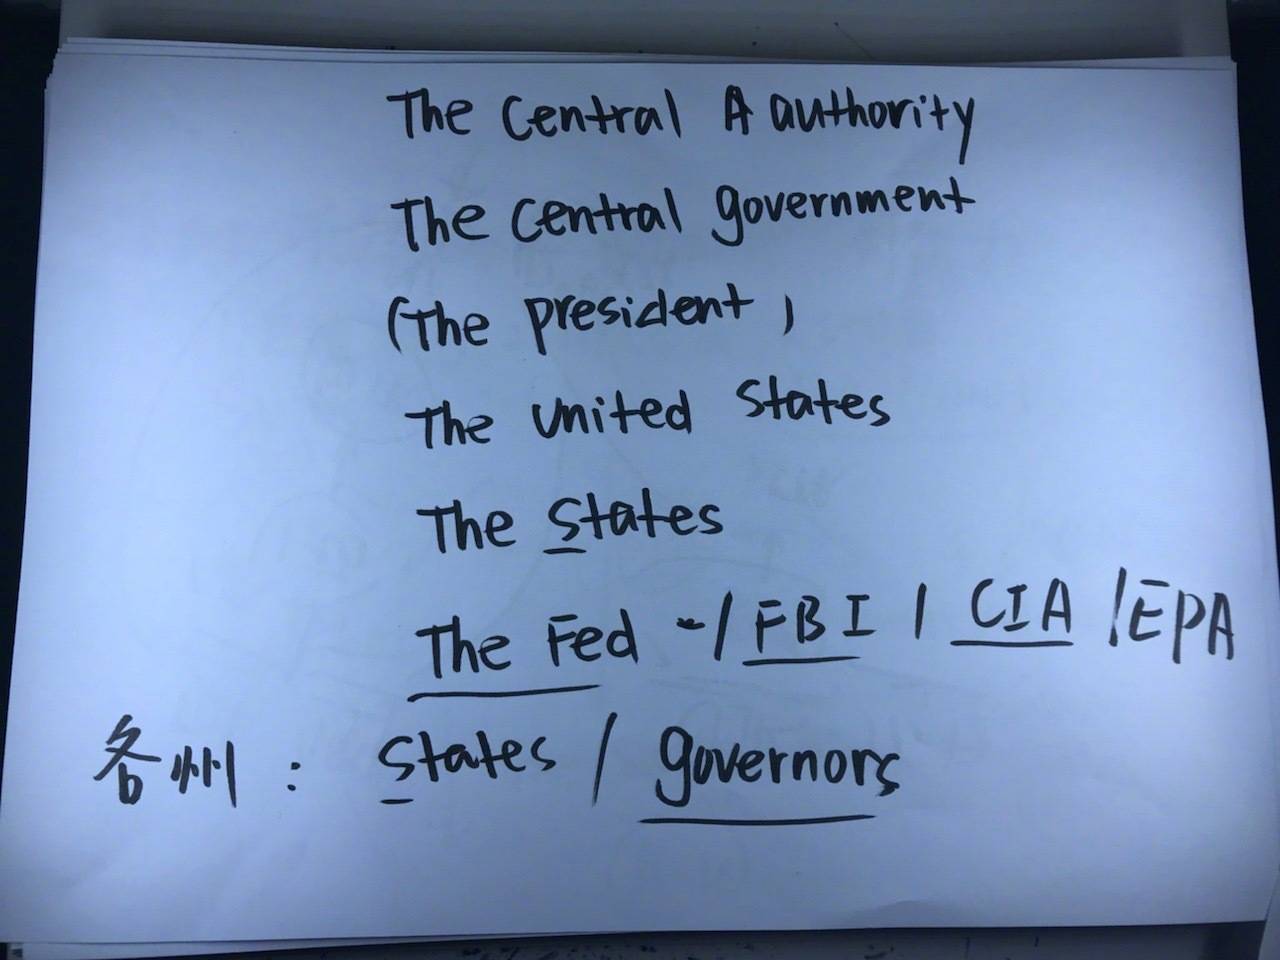 The Central A authority
The Central government
(The president)
The United States
The States
The Fed -/ FBI / CIA / EPA
各州: States / governors